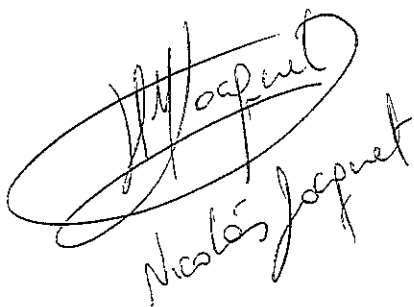 Jacquet
Nicolás Jacquet